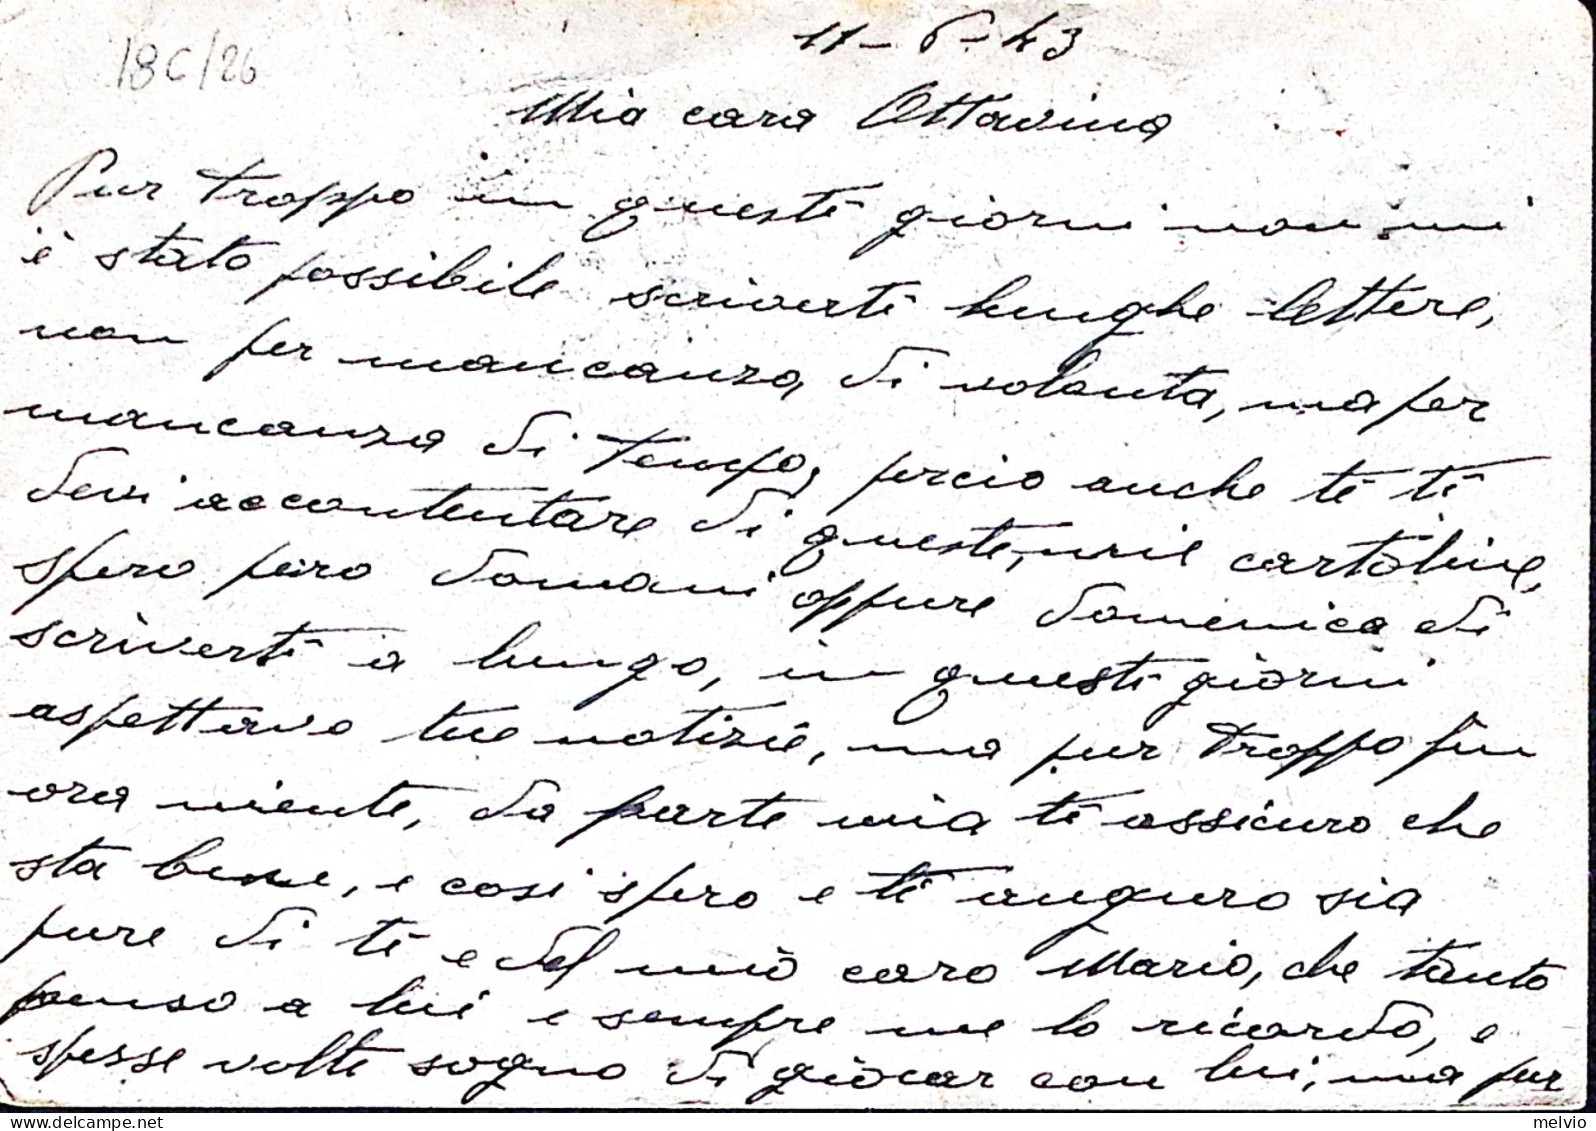 18C/26
11-6-43
Mia cara Ottavina
Pur troppo in questi giorni non mi
è stato possibile scriverti lunghe lettere,
non per mancanza, di volonta, ma per
mancanza di tempo, percio anche te ti
devi accontentare di queste, mie cartoline,
spero pero domani oppure domenica di
scriverti a lungo, in questi giorni
aspettavo tue notizie, ma pur troppo fin
ora niente, da parte mia ti assicuro che
sta bene, e cosi spero e ti auguro sia
pure di te e del mio caro Mario, che tanto
penso a lui e sempre me lo ricordo, e
spesse volte sogno di giocar con lui, ma pur
melvio